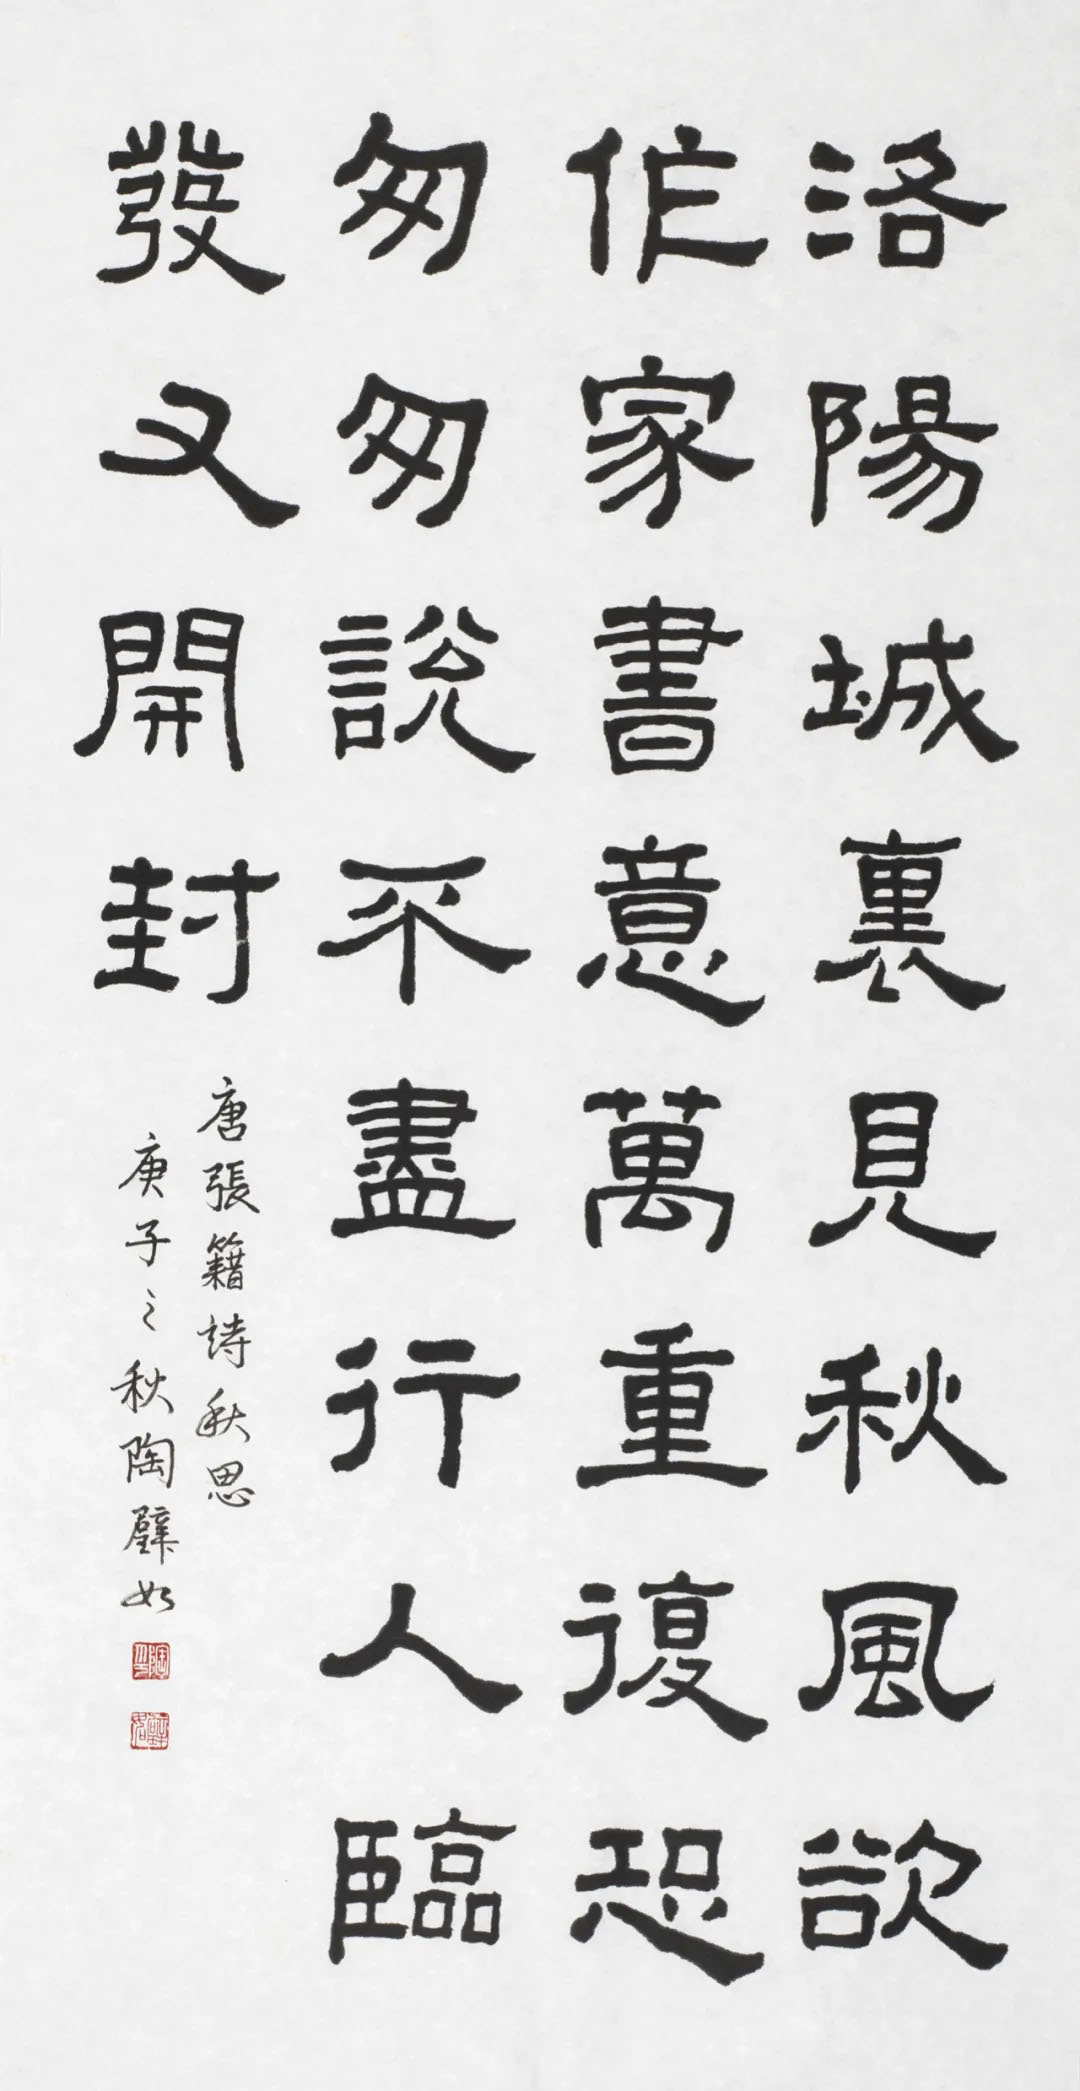 洛陽城裏見秋風欲
作家書意萬重復恐
匆匆說不盡行人臨
發又開封
唐張籍詩秋思
庚子之秋陶璧如